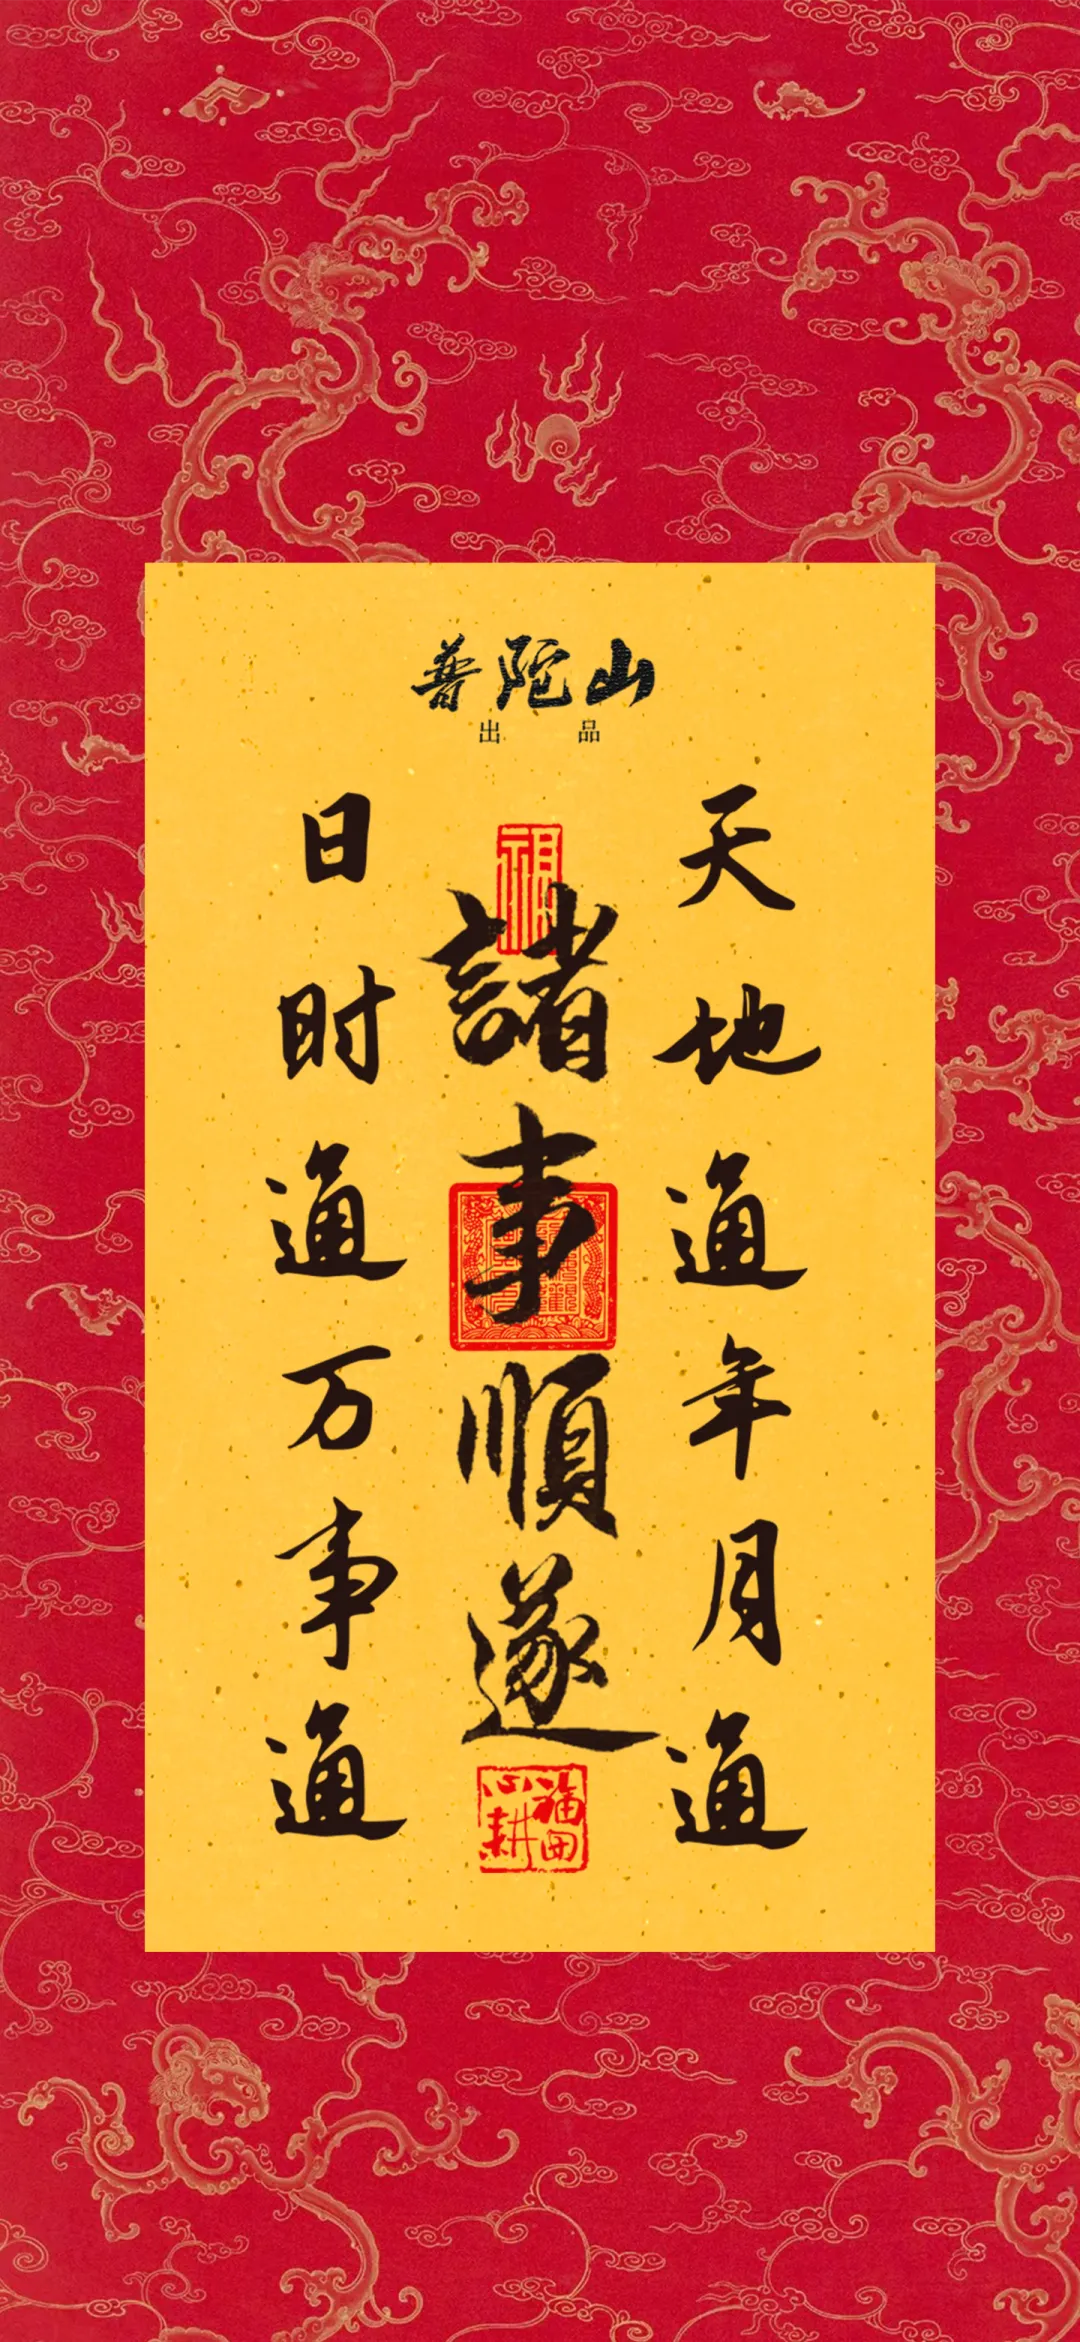 普陀山
出品
天地通年月通
諸事順遂
日时通万事通
福田
心耕